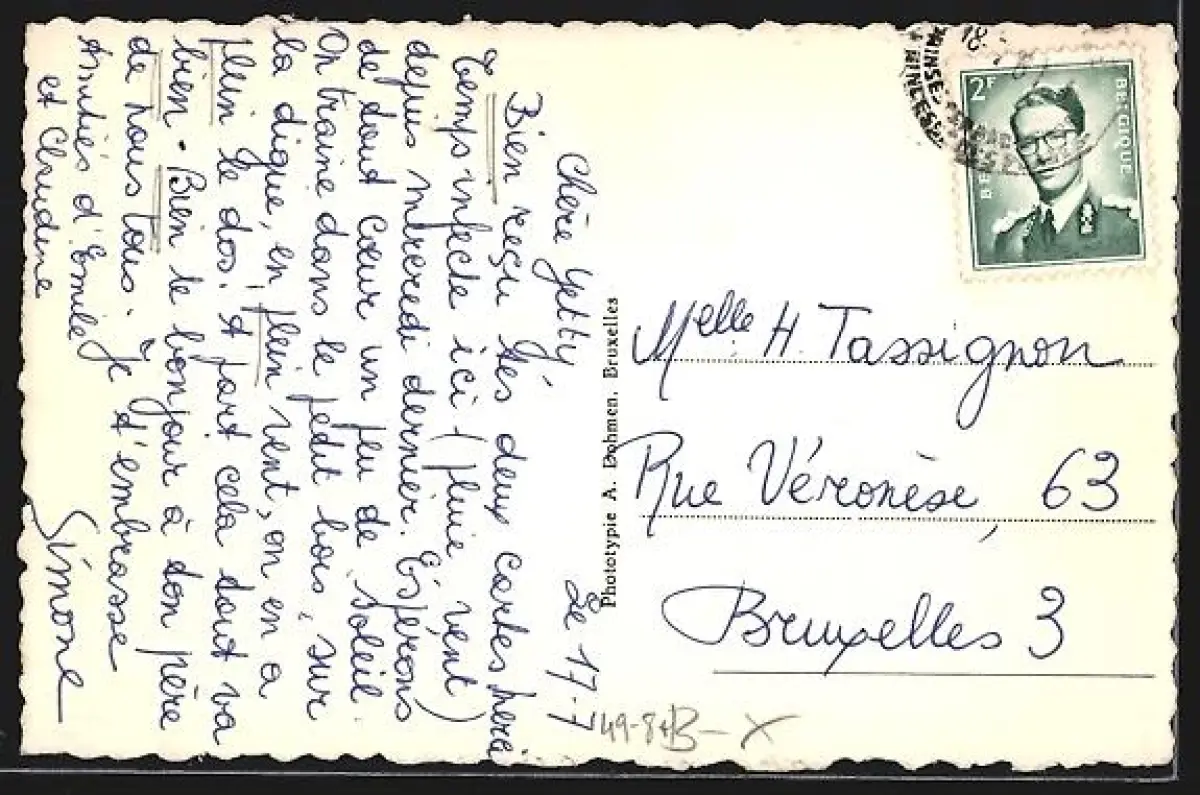 Le 17-7
Chère Yetty,
Bien reçu tes deux cartes, merci
Temps infecte ici (pluie, vent)
depuis mercredi dernier. Espérons
de tout cœur un peu de soleil.
On traine dans le petit bois, sur
la digue, en plein vent, on en a
plein le dos. A part cela tout va
bien. Bien le bonjour à ton père
de nous tous. Je t'embrasse
Amitiés d'Emile
et Claudine
Simone
Phototypie A. Dohmen, Bruxelles
2F
BELGIQUE
Melle H. Tassignon
Rue Véronèse, 63
Bruxelles 3